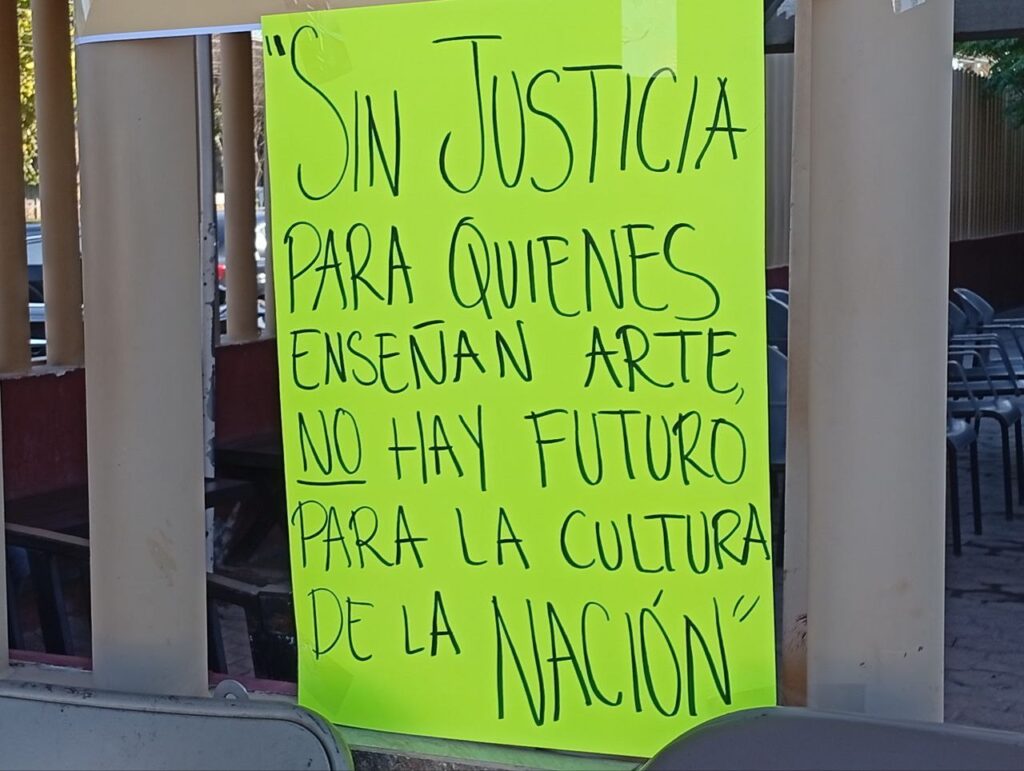 "SIN JUSTICIA
PARA QUIENES
ENSEÑAN ARTE,
NO HAY FUTURO
PARA LA CULTURA
DE LA NACIÓN"